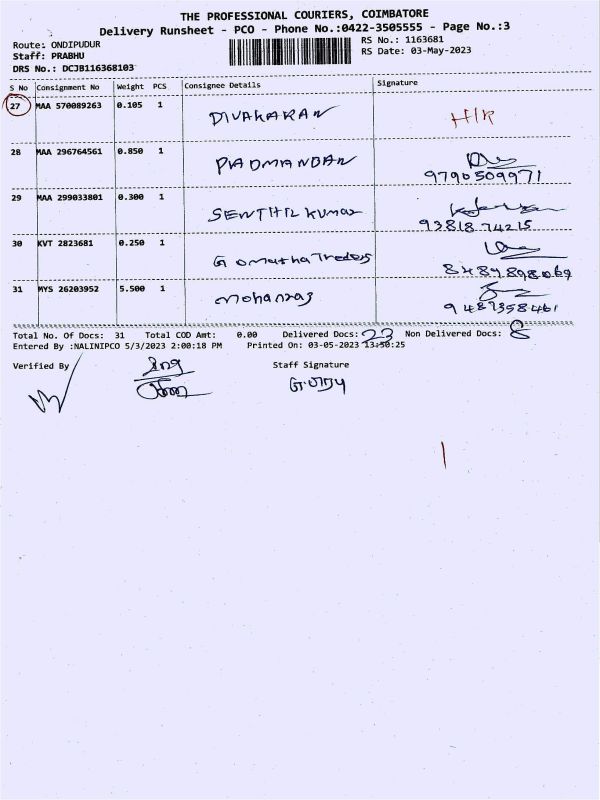 THE PROFESSIONAL COURIERS, COIMBATORE
Delivery Runsheet - PCO - Phone No.:0422-3505555 - Page No.:3
Route: ONDIPUDUR
RS No.: 1163681
Staff: PRABHU
RS Date: 03-May-2023
DRS No.: DCJB116368103
S No Consignment No Weight PCS Consignee Details Signature
27 MAA 570089263 0.105 1 DIVAKARAN H/R
28 MAA 296764561 0.850 1 PADMANDAN
9790509971
29 MAA 299033801 0.300 1 SENTHIL KUMAR
9381874215
30 KVT 2823681 0.250 1 Gomatha Traders
8489898069
31 MYS 26203952 5.500 1 mohanraj
9487358461
Total No. Of Docs: 31 Total COD Amt: 0.00 Delivered Docs: 23 Non Delivered Docs: 8
Entered By :NALINIPCO 5/3/2023 2:00:18 PM Printed On: 03-05-2023 13:50:25
Verified By Staff Signature